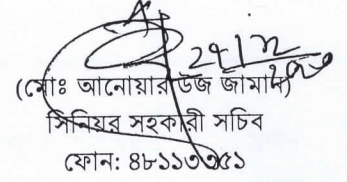 (মোঃ আনোয়ার উজ জামান)
সিনিয়র সহকারী সচিব
ফোন: ৪৮১১৩৩৫১